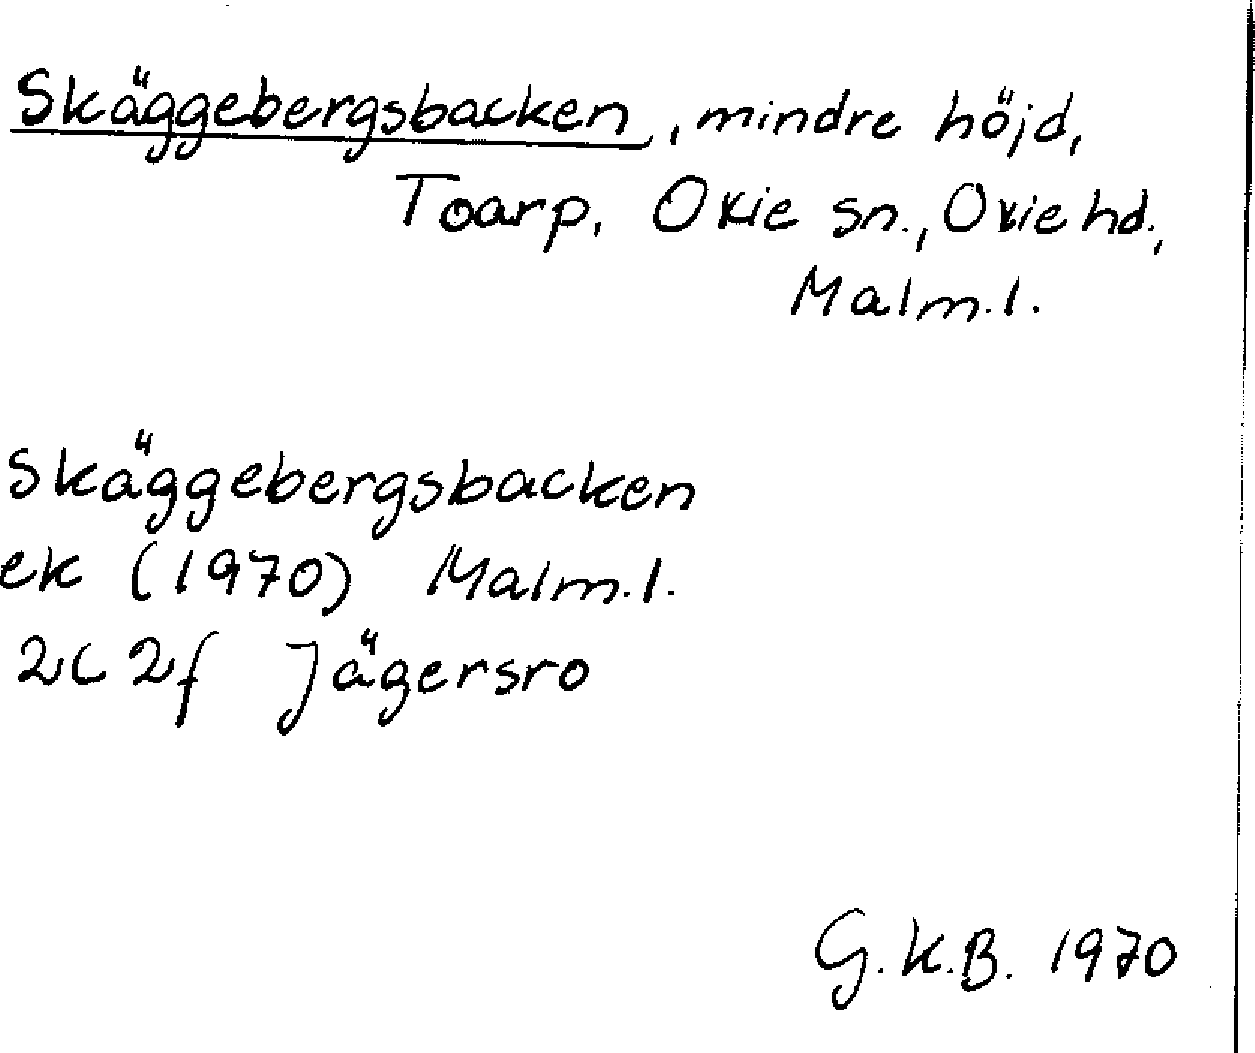 Skäggebergsbacken, mindre höjd,
Toarp, Oxie sn., Oxie hd.,
Malm.l.
Skäggebergsbacken
ek (1970) Malm.l.
2C 2f Jägersro
G.K.B. 1970